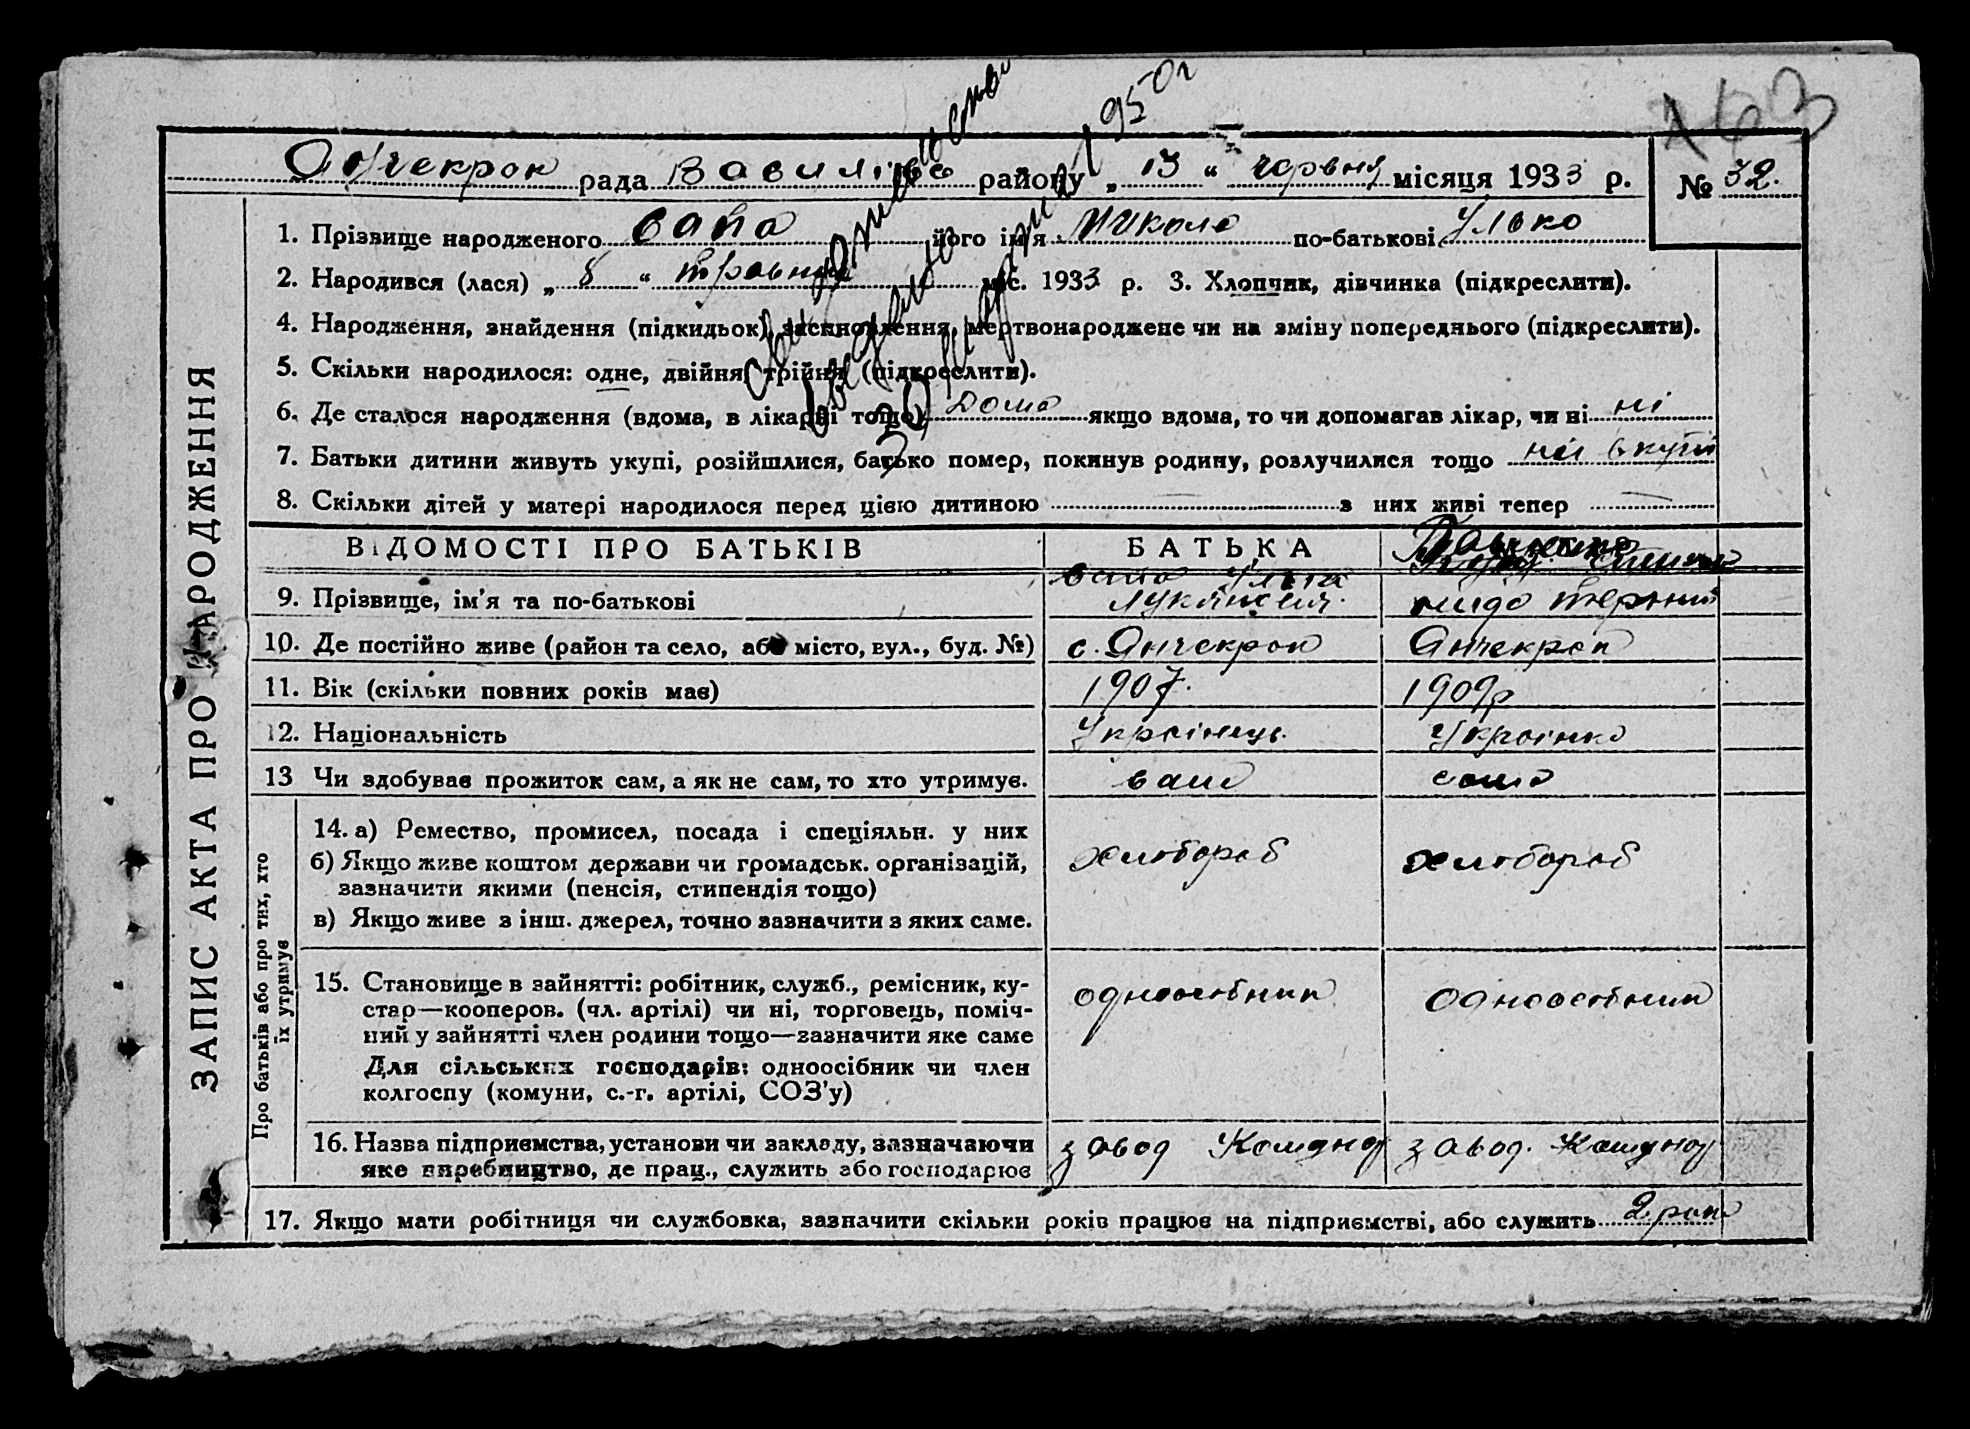 163
Янчекрак рада Василівс району „ 13 “ червня місяця 1933 р. № 32.
1. Прізвище народженого Сапа його ім'я Микола по-батькові Улько
2. Народився (лася) „ 8 “ травня міс. 1933 р. 3. Хлопчик, дівчинка (підкреслити).
4. Народження, знайдення (підкидьок), засиновлення, мертвонароджене чи на зміну попереднього (підкреслити).
5. Скільки народилося: одне, двійня, трійня (підкреслити).
6. Де сталося народження (вдома, в лікарні тощо) Дома якщо вдома, то чи допомагав лікар, чи ні ні
7. Батьки дитини живуть укупі, розійшлися, батько помер, покинув родину, розлучилися тощо вкупі
8. Скільки дітей у матері народилося перед цією дитиною — з них живі тепер —
ВІДОМОСТІ ПРО БАТЬКІВ БАТЬКА
9. Прізвище, ім'я та по-батькові Сапа Улька
10. Де постійно живе (район та село, або місто, вул., буд. №) с. Янчекрак Янчекрак
11. Вік (скільки повних років має) 1907. 1909р
12. Національність Українець Українка
13 Чи здобуває прожиток сам, а як не сам, то хто утримує. сам сама
14. а) Ремество, промисел, посада і спеціяльн. у них
б) Якщо живе коштом держави чи громадськ. організацій,
зазначити якими (пенсія, стипендія тощо)
в) Якщо живе з інш. джерел, точно зазначити з яких саме.
хлібороб хлібороб
15. Становище в зайнятті: робітник, служб., ремісник, ку-
стар—кооперов. (чл. артілі) чи ні, торговець, поміч-
ний у зайнятті член родини тощо—зазначити яке саме
Для сільських господарів: одноосібник чи член
колгоспу (комуни, с.-г. артілі, СОЗ'у)
одноосібник одноосібник
16. Назва підприємства, установи чи закладу, зазначаючи
яке виробництво, де прац., служить або господарює
завод Комунар завод. Комунар
17. Якщо мати робітниця чи службовка, зазначити скільки років працює на підприємстві, або служить 2 рок
ЗАПИС АКТА ПРО НАРОДЖЕННЯ
Про батьків або про тих, хто
їх утримує